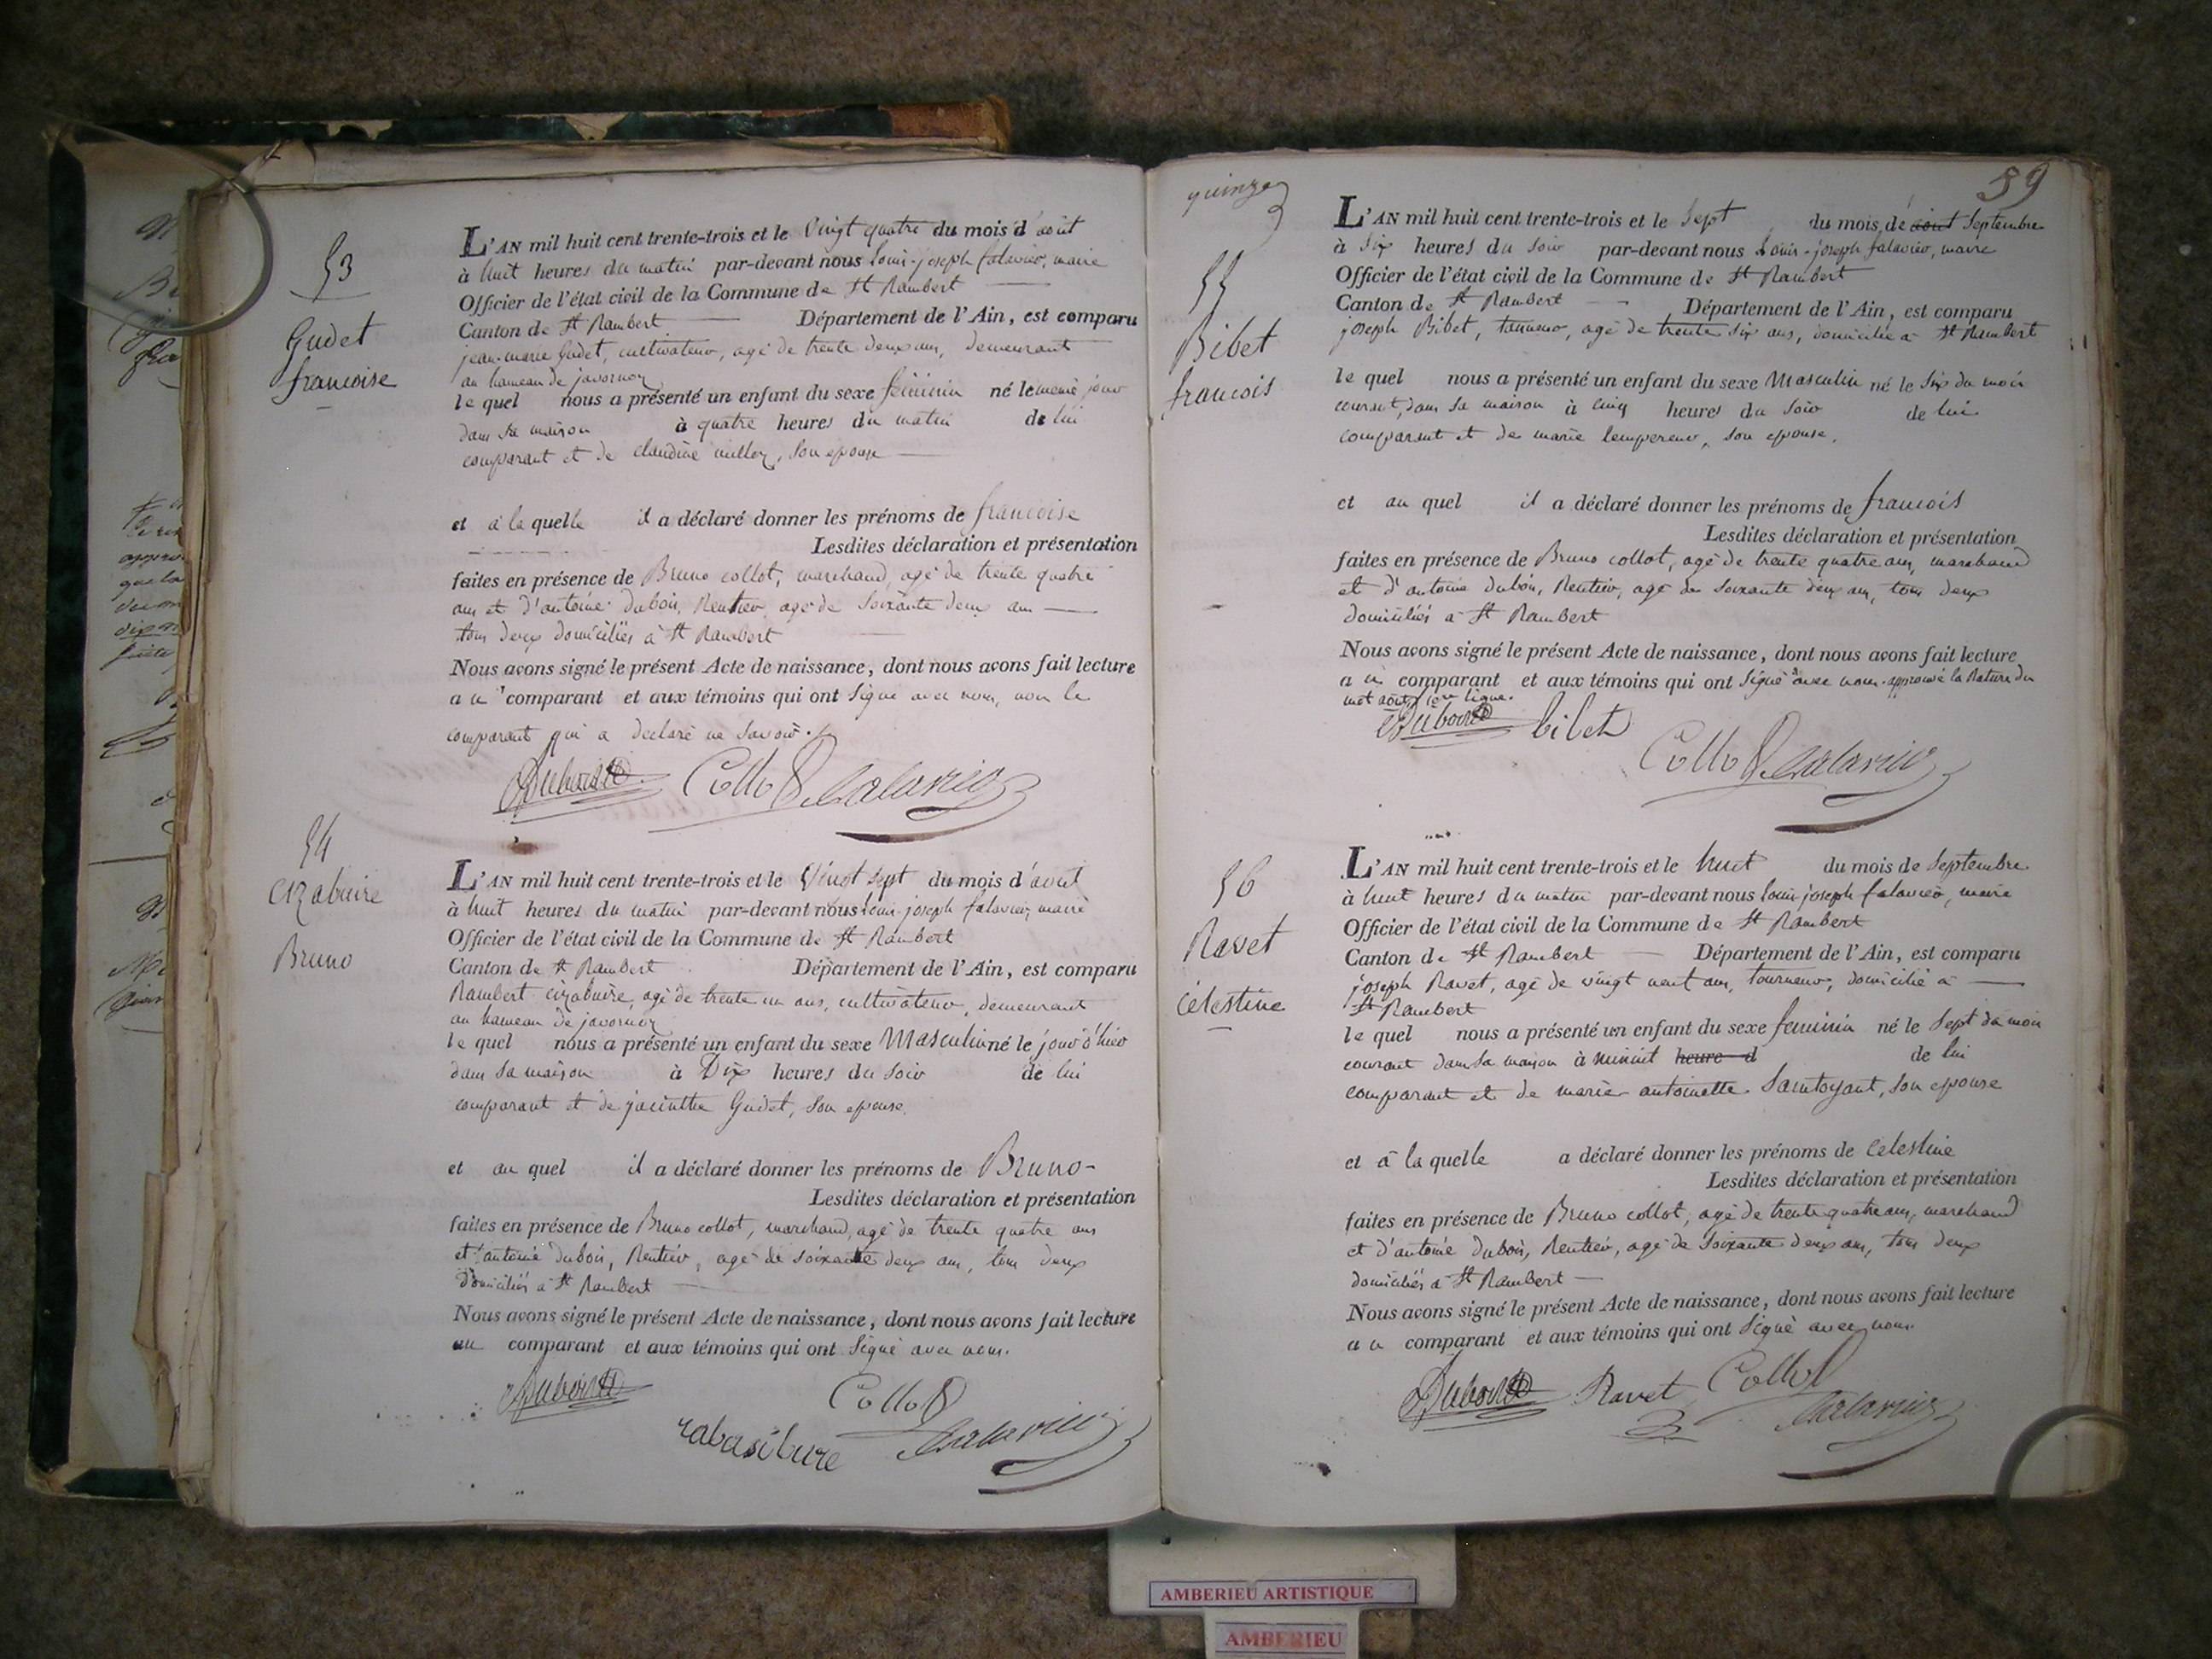 53
Gudet
francoise
L'AN mil huit cent trente-trois et le vingt quatre du mois d'août
à huit heures du matin par-devant nous louis-joseph falavier, maire
Officier de l'état civil de la Commune de St Rambert
Canton de St Rambert Département de l'Ain, est comparu
jean-marie Gudet, cultivateur, agé de trente deux ans, demeurant
au hameau de javornoz
le quel nous a présenté un enfant du sexe féminin né le même jour
dans sa maison à quatre heures du matin de lui
comparant et de claudine son epouse
et à la quelle il a déclaré donner les prénoms de francoise
Lesdites déclaration et présentation
faites en présence de Bruno collot, marchand, agé de trente quatre
ans et d'antoine dubois, Rentier agé de Soixante deux ans
tous deux domiciliés à St Rambert
Nous avons signé le présent Acte de naissance, dont nous avons fait lecture
au comparant et aux témoins qui ont Signé avec nous, non le
comparant qui a declaré ne Savoir.
Dubois Collot falavier
54
cizabuire
Bruno
L'AN mil huit cent trente-trois et le Vingt Sept du mois d'août
à huit heures du matin par-devant nous louis-joseph falavier, maire
Officier de l'état civil de la Commune de St Rambert
Canton de St Rambert Département de l'Ain, est comparu
Rambert cizabuire, agé de trente un ans, cultivateur, demeurant
au hameau de javornoz
le quel nous a présenté un enfant du sexe Masculin né le jour d'hier
dans sa maison à Dix heures du Soir de lui
comparant et de jacinthe Gudet, Son epouse.
et au quel il a déclaré donner les prénoms de Bruno-
Lesdites déclaration et présentation
faites en présence de Bruno collot, marchand, agé de trente quatre ans
et antoine dubois, Rentier, agé de soixante deux ans, tous deux
domiciliés à St Rambert
Nous avons signé le présent Acte de naissance, dont nous avons fait lecture
au comparant et aux témoins qui ont Signé avec nous.
Dubois Collot
falavier
quinze
59
55
Bibet
francois
L'AN mil huit cent trente-trois et le Sept du mois de août Septembre
à Six heures du Soir par-devant nous Louis-joseph falavier, maire
Officier de l'état civil de la Commune de St Rambert
Canton de St Rambert Département de l'Ain, est comparu
joseph Bibet, tanneur, agé de trente Six ans, domicilié à St Rambert
le quel nous a présenté un enfant du sexe Masculin né le Six du mois
courant, dans Sa maison à cinq heures du Soir de lui
comparant et de marie lempereur, Son epouse.
et au quel il a déclaré donner les prénoms de francois
Lesdites déclaration et présentation
faites en présence de Bruno collot, agé de trente quatre ans, marchand
et d'antoine dubois, Rentier, agé de Soixante deux ans, tous deux
domiciliés à St Rambert
Nous avons signé le présent Acte de naissance, dont nous avons fait lecture
au comparant et aux témoins qui ont Signé avec nous. approuvé la Rature du
mot août 1ere ligne.
Dubois bibet
Collot falavier
56
Ravet
célestine
L'AN mil huit cent trente-trois et le huit du mois de Septembre
à huit heures du matin par-devant nous louis joseph falavier, maire
Officier de l'état civil de la Commune de St Rambert
Canton de St Rambert Département de l'Ain, est comparu
joseph Ravet, agé de vingt neuf ans, tourneur, domicilié à
St Rambert
le quel nous a présenté un enfant du sexe feminin né le Sept du mois
courant dans Sa maison à minuit heure d de lui
comparant et de marie antoinette Saintoyant, Son epouse
et à la quelle a déclaré donner les prénoms de celestine
Lesdites déclaration et présentation
faites en présence de Bruno collot, agé de trente quatre ans, marchand
et d'antoine dubois, Rentier, agé de Soixante deux ans, tous deux
domiciliés à St Rambert
Nous avons signé le présent Acte de naissance, dont nous avons fait lecture
au comparant et aux témoins qui ont Signé avec nous.
Dubois Ravet Collot
falavier
AMBERIEU ARTISTIQUE
AMBERIEU